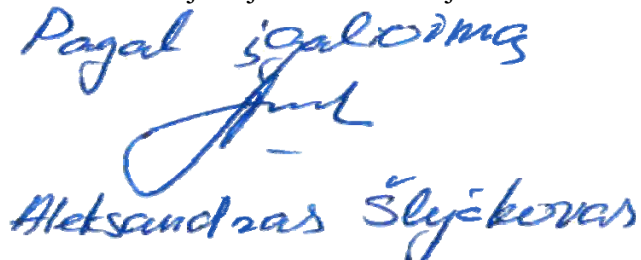 Pagal įgaliojimą
Aleksandras Šlyčkovas